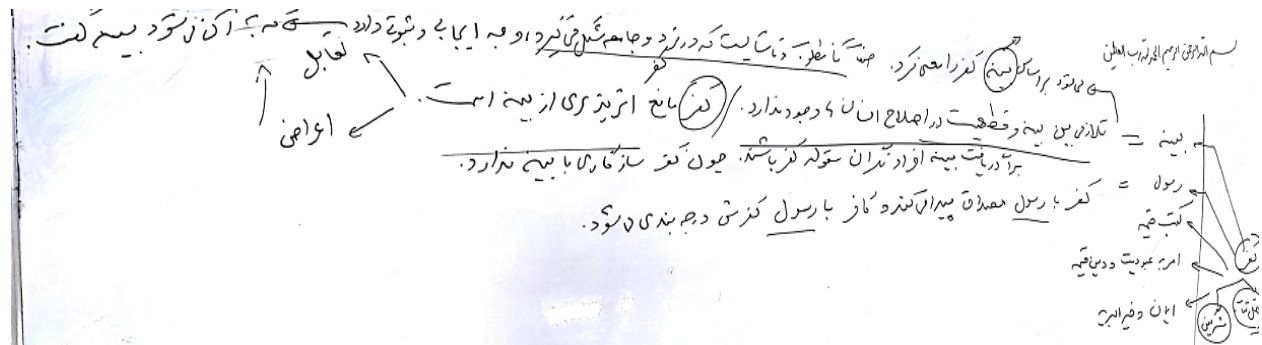 بسم الله الرحمن الرحیم الحمد لله رب العالمین
می‌شود براساس بینه کفر را معنی کرد. ضمناً نامطلوب و ناشایست که در فرد و جامعه شکل می‌گیرد، وجه ایجابی و ثبوتی دارد که به آن نمی‌شود بینه گفت.
بینه = تلازمی بین بینه و قطعیت در اصلاح انسان‌ها وجود ندارد. / کفر مانع اثرپذیری از بینه است.
کفر
تقابل
اعراض
برای دریافت بینه افراد نگران مقوله کفر باشند. چون کفر سازگاری با بینه ندارد.
رسول = کفر با رسول مصداق پیدا می‌کند و کافر با رسول کفرش درجه بندی می‌شود.
کتب قیمه
امر به عبودیت و دین قیمه
ایمان و خیر البریه
کفر
مشرکین